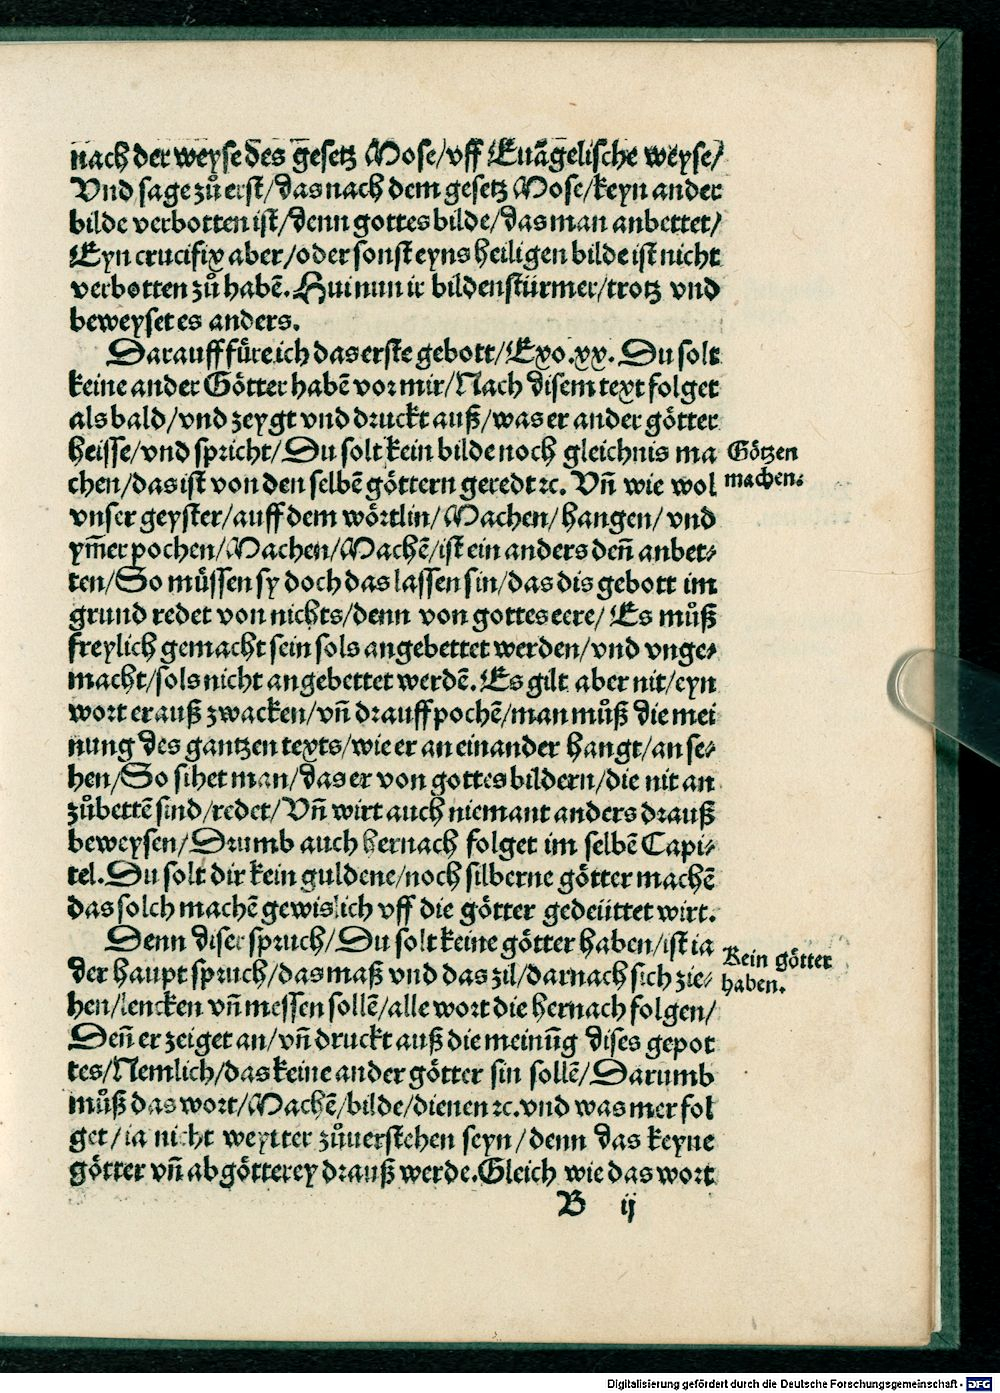 nach der weyse des gesetz Mose/vff Euãgelische weyse/
Vnd sage zů erst/das nach dem gesetz Mose/keyn ander
bilde verbotten ist/denn gottes bilde/das man anbettet/
Eyn crucifix aber/oder sonst eyns heiligen bilde ist nicht
verbotten zů habẽ. Hui nun ir bildenstürmer/trotz vnd
beweyset es anders.
Darauff füre ich das erste gebott/Exo.xx. Du solt
keine ander Götter habẽ vor mir/Nach disem text folget
als bald/vnd zeygt vnd druckt auß/was er ander götter
heisse/vnd spricht/Du solt kein bilde noch gleichnis ma
chen/das ist von den selbẽ göttern geredt ꝛc. Vñ wie wol
vnser geyster/auff dem wörtlin/Machen/hangen/vnd
ym̃er pochen/Machen/Machẽ/ist ein anders deñ anbet⸗
ten/So müssen sy doch das lassen sin/das dis gebott im
grund redet von nichts/denn von gottes eere/Es můß
freylich gemacht sein sols angebettet werden/vnd vnge⸗
macht/sols nicht angebettet werdẽ. Es gilt aber nit/eyn
wort erauß zwacken/vñ drauff pochẽ/man můß die mei
nung des gantzen texts/wie er an einander hangt/an se⸗
hen/So sihet man/das er von gottes bildern/die nit an
zůbettẽ sind/redet/Vñ wirt auch niemant anders drauß
beweysen/Drumb auch hernach folget im selbẽ Capi⸗
tel. Du solt dir kein guldene/noch silberne götter machẽ
das solch machẽ gewislich vff die götter gedeüttet wirt.
Denn diser spruch/Du solt keine götter haben/ist ia
der haupt spruch/das maß vnd das zil/darnach sich zie⸗
hen/lencken vñ messen sollẽ/alle wort die hernach folgen/
Deñ er zeiget an/vñ druckt auß die meinũg dises gepot
tes/Nemlich/das keine ander götter sin sollẽ/Darumb
můß das wort/Machẽ/bilde/dienen ꝛc. vnd was mer fol
get/ia nicht weytter zůuerstehen seyn/denn das keyne
götter vñ abgötterey drauß werde. Gleich wie das wort
B ij
Götzen
machen.
Kein götter
haben.
Digitalisierung gefördert durch die Deutsche Forschungsgemeinschaft - DFG